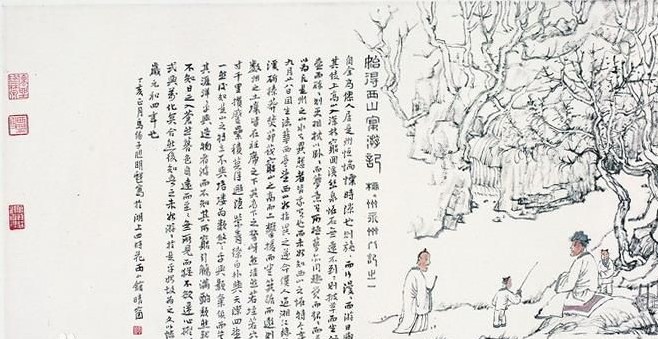 始得西山宴游記 柳州永州八記之一
自余為僇人居是州恆惴慄時隙也則施而行漫而游日
其徒上高山入深林窮迴溪幽泉怪石無遠不到到則披草而坐
壺而醉醉則更相枕以臥而夢意有所極夢亦同趣覺而起而
以為凡是州之山水有異態者皆我有也而未始知西山之怪特今年
九月廿八日因坐法華西亭望西山始指異之遂命僕人過湘江緣
染溪斫榛莽焚茅茷窮山之高而止攀援而登箕踞而遨則
數州之土壤皆在衽席之下其高下之勢岈然洼然若垤若穴
寸千里攢蹙累積莫得遯隱縈青繚白外與天際四望
一然後知是山之特立不與培塿為類悠悠乎與顥氣俱而莫
其涯洋洋乎與造物者游而不知其所窮引觴滿酌頹然就
不知日之入蒼然暮色自遠而至至無所見而猶不欲歸心凝
釋與萬化冥合然後知吾嚮之未始游游於是乎始故為之文以志
歲元和四年也
丁亥正月